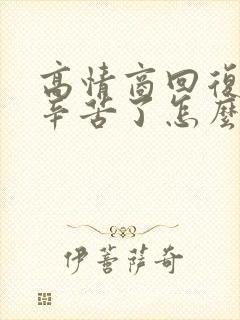 高情商回復
辛苦了怎麼
伊菩薩奇